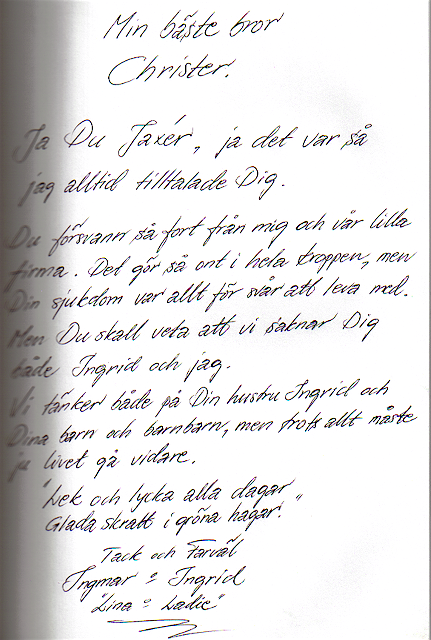 Min bäste bror
Christer.
Ja Du Taxér, ja det var så
jag alltid tilltalade Dig.
Du försvann så fort från mig och vår lilla
firma. Det gör så ont i hela kroppen, men
Din sjukdom var allt för svår att leva med.
Men Du skall veta att vi saknar Dig
både Ingrid och jag.
Vi tänker både på Din hustru Ingrid och
Dina barn och barnbarn, men trots allt måste
ju livet gå vidare.
"Lek och lycka alla dagar
Glada skratt i gröna hagar."
Tack och Farväl
Ingmar = Ingrid
"Lina = Ladie"